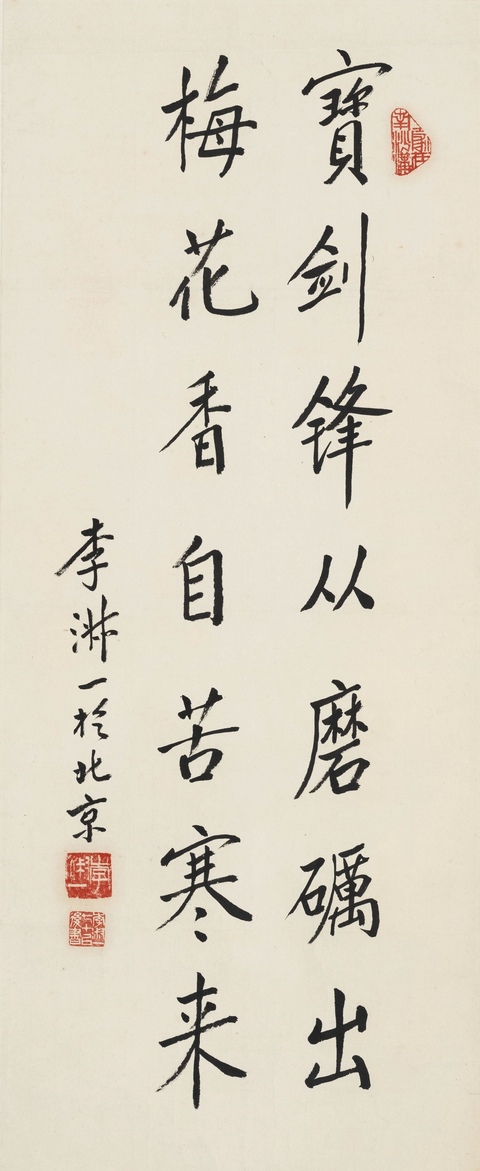 寶剑锋从磨礪出
梅花香自苦寒来
李淑一於北京